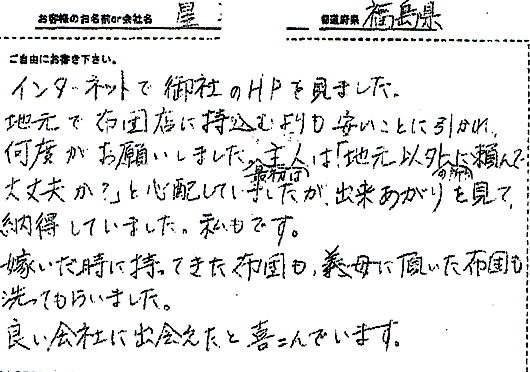 お客様のお名前or会社名 星 都道府県 福島県
ご自由にお書き下さい。
インターネットで御社のHPを見ました。
地元で布団店に持込むよりも安いことに引かれ、
何度かお願いしました。主人は「地元以外に頼んで
最初は
大丈夫か?」と心配していましたが、出来あがりを見て、
納得していました。私もです。
嫁いだ時に持ってきた布団も、義母に頂いた布団も
洗ってもらいました。
良い会社に出会えたと喜こんでいます。